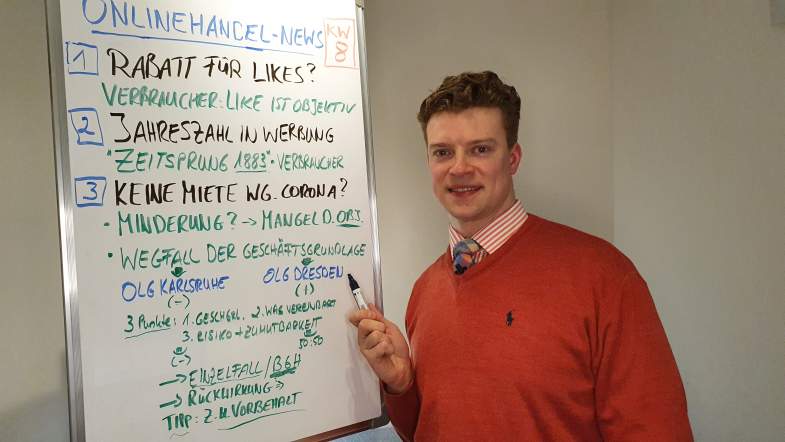 ONLINEHANDEL-NEWS
KW 8
1 RABATT FÜR LIKES?
VERBRAUCHER: LIKE IST OBJEKTIV
2 JAHRESZAHL IN WERBUNG
"ZEITSPRUNG 1883" · VERBRAUCHER
3 KEINE MIETE WG. CORONA?
· MINDERUNG? → MANGEL D. OBJ.
· WEGFALL DER GESCHÄFTSGRUNDLAGE
OLG KARLSRUHE OLG DRESDEN
(-) (+)
3 Punkte: 1. GESCHGRL. 2. WAS VEREINBART
3. RISIKO + ZUMUTBARKEIT
(-) 50:50
→ EINZELFALL / BGH
→ RÜCKWIRKUNG
TIPP: Z. U. VORBEHALT